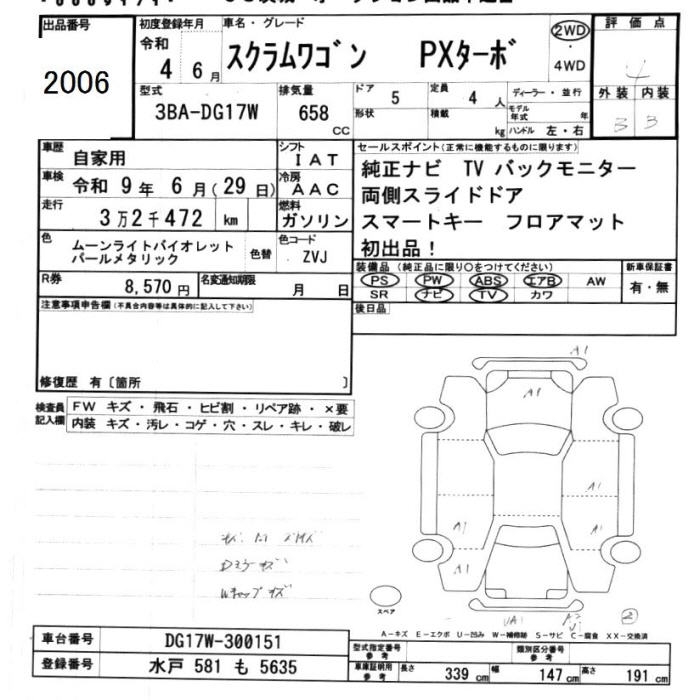 出品番号 初度登録年月 車名・グレード 評価点
2006 令和 4 6月 スクラムワゴン PXターボ 2WD・4WD 4
型式 排気量 ドア 定員 ディーラー・並行 外装 内装
3BA-DG17W 658 CC 5 4人 モデル年式 年 3 3
形状 積載 kg ハンドル 左・右
車歴 自家用 シフト IAT セールスポイント(正常に機能するものに限ります)
車検 令和 9年 6月(29日) 冷房 AAC 純正ナビ TV バックモニター
両側スライドドア
走行 3万2千472 km 燃料 ガソリン スマートキー フロアマット
色 ムーンライトバイオレットパールメタリック 色替 色コード ZVJ 初出品!
装備品 (純正品に限り○をつけてください) 新車保証書
R券 8,570円 名変通知期限 月 日 PS PW ABS エアB AW 有・無
SR ナビ TV カワ
注意事項申告欄(不具合内容等は具体的に記入して下さい) 後日品
修復歴 有〔箇所 〕
検査員記入欄 FW キズ・飛石・ヒビ割・リペア跡・×要
内装 キズ・汚レ・コゲ・穴・スレ・キレ・破レ
A1
A1
A1
A1 A1
A1
スペア UA1 A2 2
A-キズ E-エクボ U-凹み W-補修跡 S-サビ C-腐食 XX-交換済
車台番号 DG17W-300151 型式指定番号 参考 類別区分番号 参考
登録番号 水戸 581 も 5635 車庫証明用 参考 長さ 339cm 幅 147cm 高さ 191cm